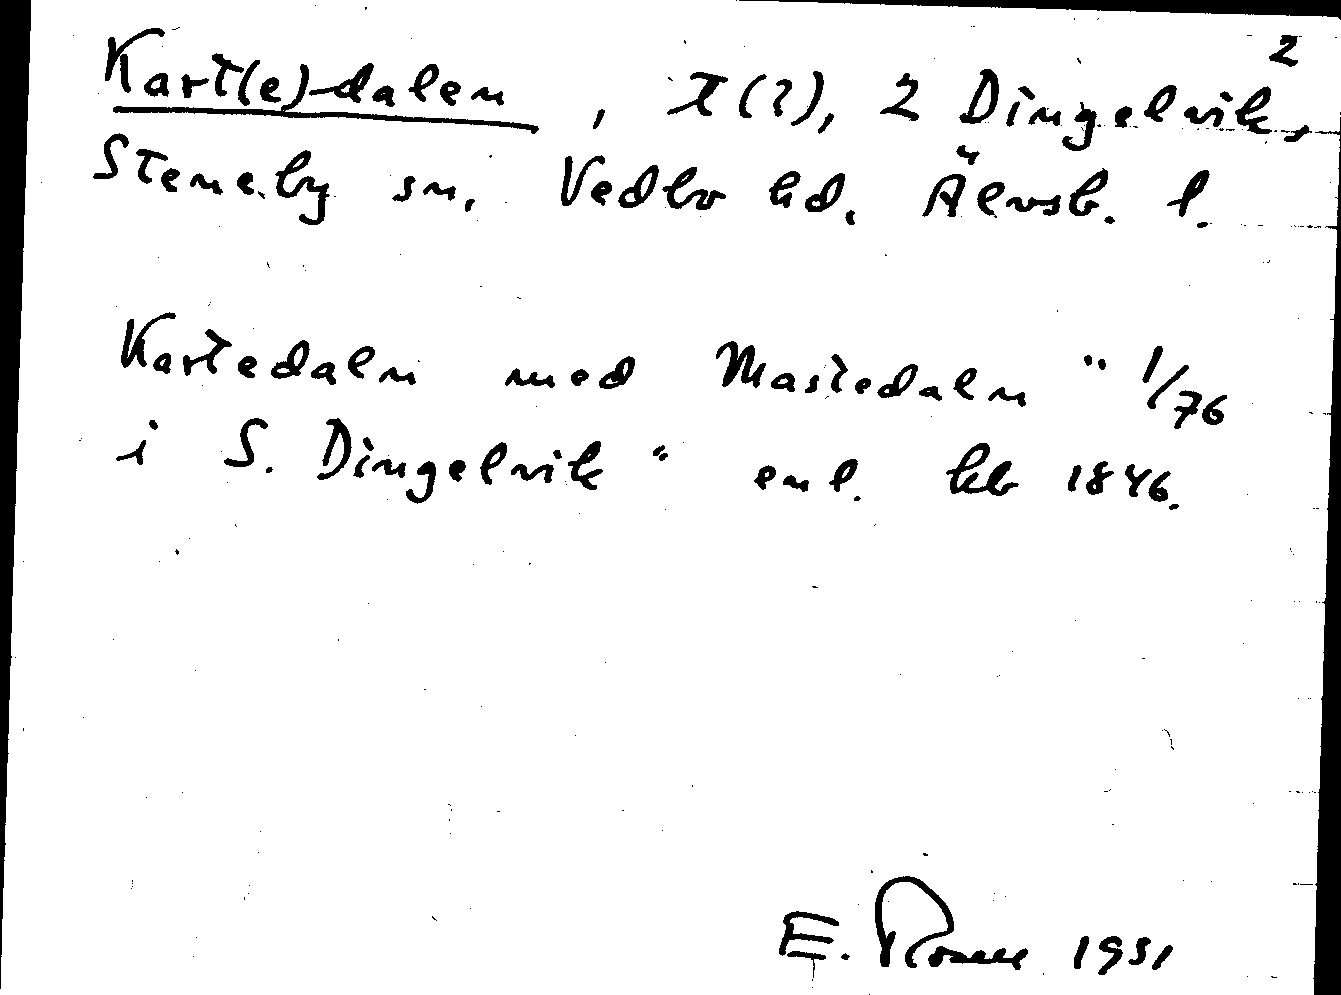 2
Kart(e)-dalen, X(?), 2 Dingelvik,
Steneby sn. Vedbo hd. Älvsb. l.
Kartedaln med Mastedaln " 1/76
i S. Dingelvik " enl. kb 1846.
E. 1931